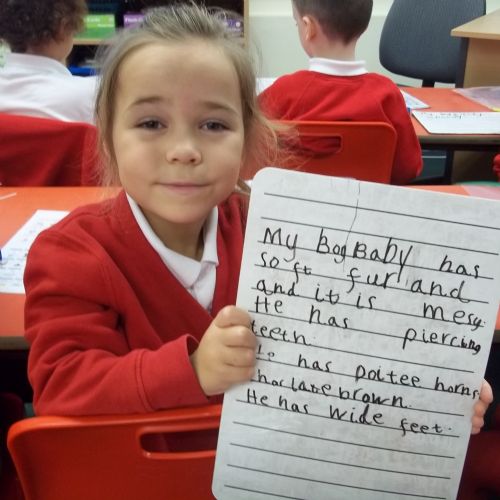 My BogBaby has
soft fur and
and it is mesy.
He has piercing
teeth.
He has poitee horns.
choclate brown.
He has wide feet.